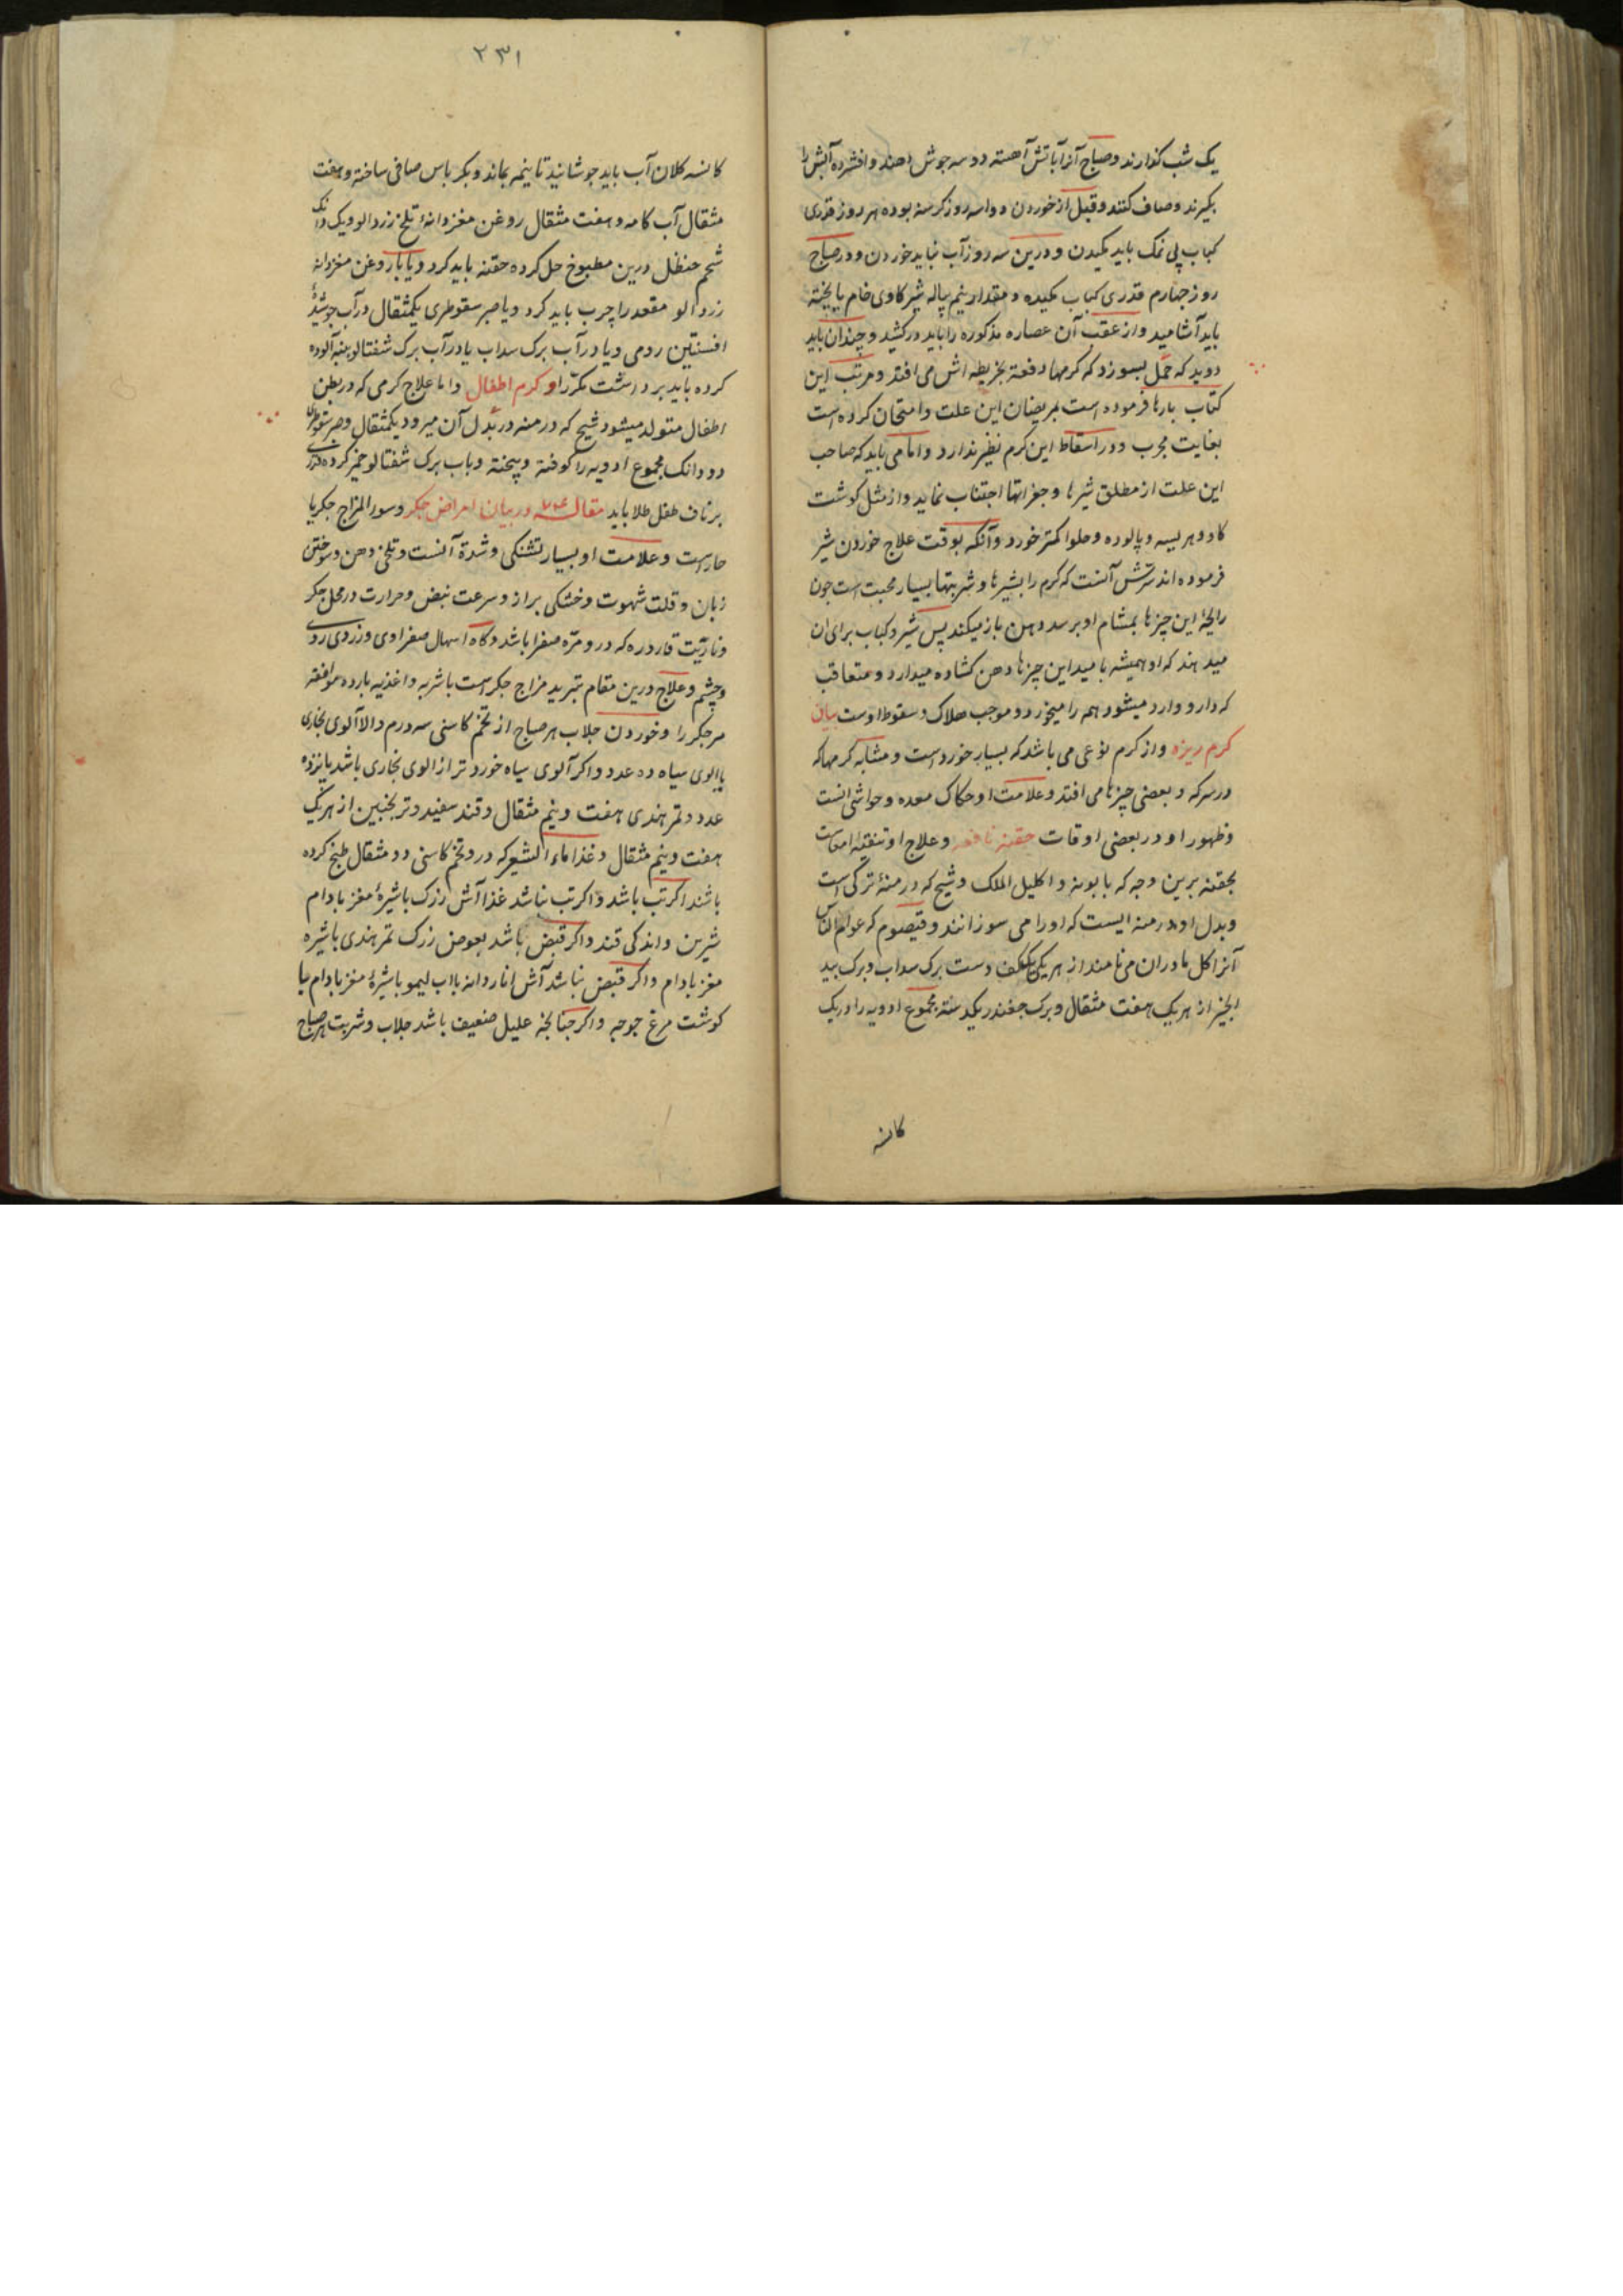 یک شب کذارند و صباح آنرا باتش آهسته دو سه جوش دهند و افشرده آبش را
بکیرند و صاف کنند و قبل از خوردن دوا سه روز کرسنه بوده هر روز قدری
کباب بی نمک باید مکیدن و درین سه روز آب نباید خوردن و در صباح
روز چهارم قدری کباب مکیده و مقدار نیم پیاله شیر کاوی خام یا پخته
باید آشامید و از عقب آن عصاره مذکوره را باید درکشید و چندان باید
دوید که حمل بسوزد که کرمها دفعة بخریطه اش می افتد و مرتب این
کتاب بارها فرموده است بمریضان این علت و امتحان کرده است
بغایت مجرب و در اسقاط این کرم نظیر ندارد و اما می باید که صاحب
این علت از مطلق شیرها و جغراتها اجتناب نماید و از مثل کوشت
کاو و هریسه و پالوده و حلوا کمتر خورد و آنکه بوقت علاج خوردن شیر
فرموده اند سرّش آنست که کرم را بشیرها و شربتها بسیار محبت است چون
رایحهٔ این چیزها بمشام او برسد دهن باز میکند پس شیر و کباب برای ان
میدهند که او همیشه بامید این چیزها دهن کشاده میدارد و متعاقب
که دارو وارد میشود هم را میخورد و موجب هلاک و سقوط اوست بیان
کرم ریزه و از کرم نوعی می باشد که بسیار خورد است و مشابه کرمها که
در سرکه و بعضی چیزها می افتد و علامت او حکاک معده و حواشی انست
و ظهور او در بعضی اوقات حقنه نافعه و علاج او تنقیهٔ امعاست
بحقنه برین وجه که بابونه و اکلیل الملک و شیح که درمنهٔ ترکی است
و بدل او درمنه ایست که او را می سوزانند و قیصوم که عوام الناس
آنرا کل مادران می نامند از هر یکی یککف دست برک سداب و برک بید
انجیر از هر یک هفت مثقال و برک چغندر یکدسته مجموع ادویه را در یک
کاسه
۲۳۱
کاسه کلان آب باید جوشانید تا نیمه بماند و بکرباس صافی ساخته و هفت
مثقال آب کامه و هفت مثقال روغن مغز دانهٔ تلخ زردالو و یک دانک
شحم حنظل درین مطبوخ حل کرده حقنه باید کرد و یا بار روغن مغز دانه
زردالو مقعد را چرب باید کرد و یا صبر سقوطری یکمثقال در آب جوشیدهٔ
افسنتین رومی و یا در آب برک سداب یا در آب برک شفتالو پنبه آلوده
کرده باید برداشت مکرّر او کرم اطفال و اما علاج کرمی که در بطن
اطفال متولد میشود شیح که درمنه در بدل آن میرود یکمثقال و صبر سقوطری
دو دانک مجموع ادویه را کوفته و پیخته و باب برک شفتالو خمیر کرده قدری
بر ناف طفل طلا باید مقاله در بیان امراض جکر و سوء المزاج جکر یا
حار است و علامت او بسیار تشنکی و شدة آنست و تلخی دهن و سوختن
زبان و قلت شهوت و خشکی براز و سرعت نبض و حرارت در محل جکر
و ناریّت قاروره که درو مرّه صفرا باشد و کاه اسهال صفراوی و زردی روی
و چشم و علاج درین مقام تبرید مزاج جکر است باشربه و اغذیه بارده موافقه
مر جکر را و خوردن جلاب هر صباح از تخم کاسنی سه درم و الا آلوی بخاری
یا الوی سیاه ده عدد و اکر آلوی سیاه خورد تر از الوی بخاری باشد پانزده
عدد و تمر هندی هفت و نیم مثقال و قند سفید و ترنجبین از هر یک
هفت و نیم مثقال و غذا ماء الشعیر که درو تخم کاسنی دو مثقال طبخ کرده
باشند اکر تب باشد و اکر تب نباشد غذا آش زرک با شیرهٔ مغز بادام
شیرین و اندکی قند و اکر قبض باشد بعوض زرک تمر هندی با شیره
مغز بادام و اکر قبض نباشد آش انار دانه با اب لیمو با شیرهٔ مغز بادام یا
کوشت مرغ جوجه و اکر چنانچه علیل ضعیف باشد جلاب و شربت هر صباح